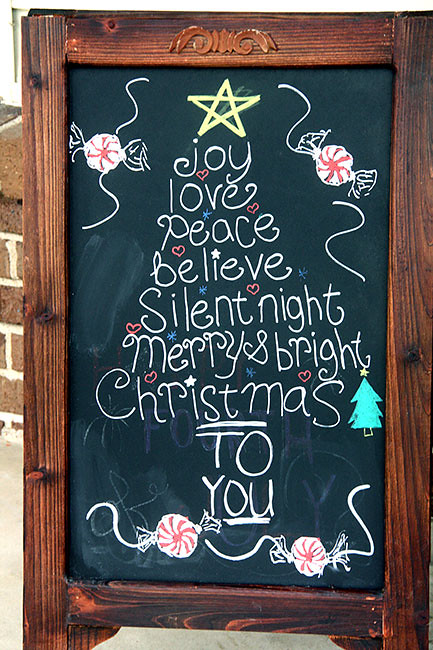 joy
love
peace
believe
Silent night
Merry & bright
Christmas
TO
YOU